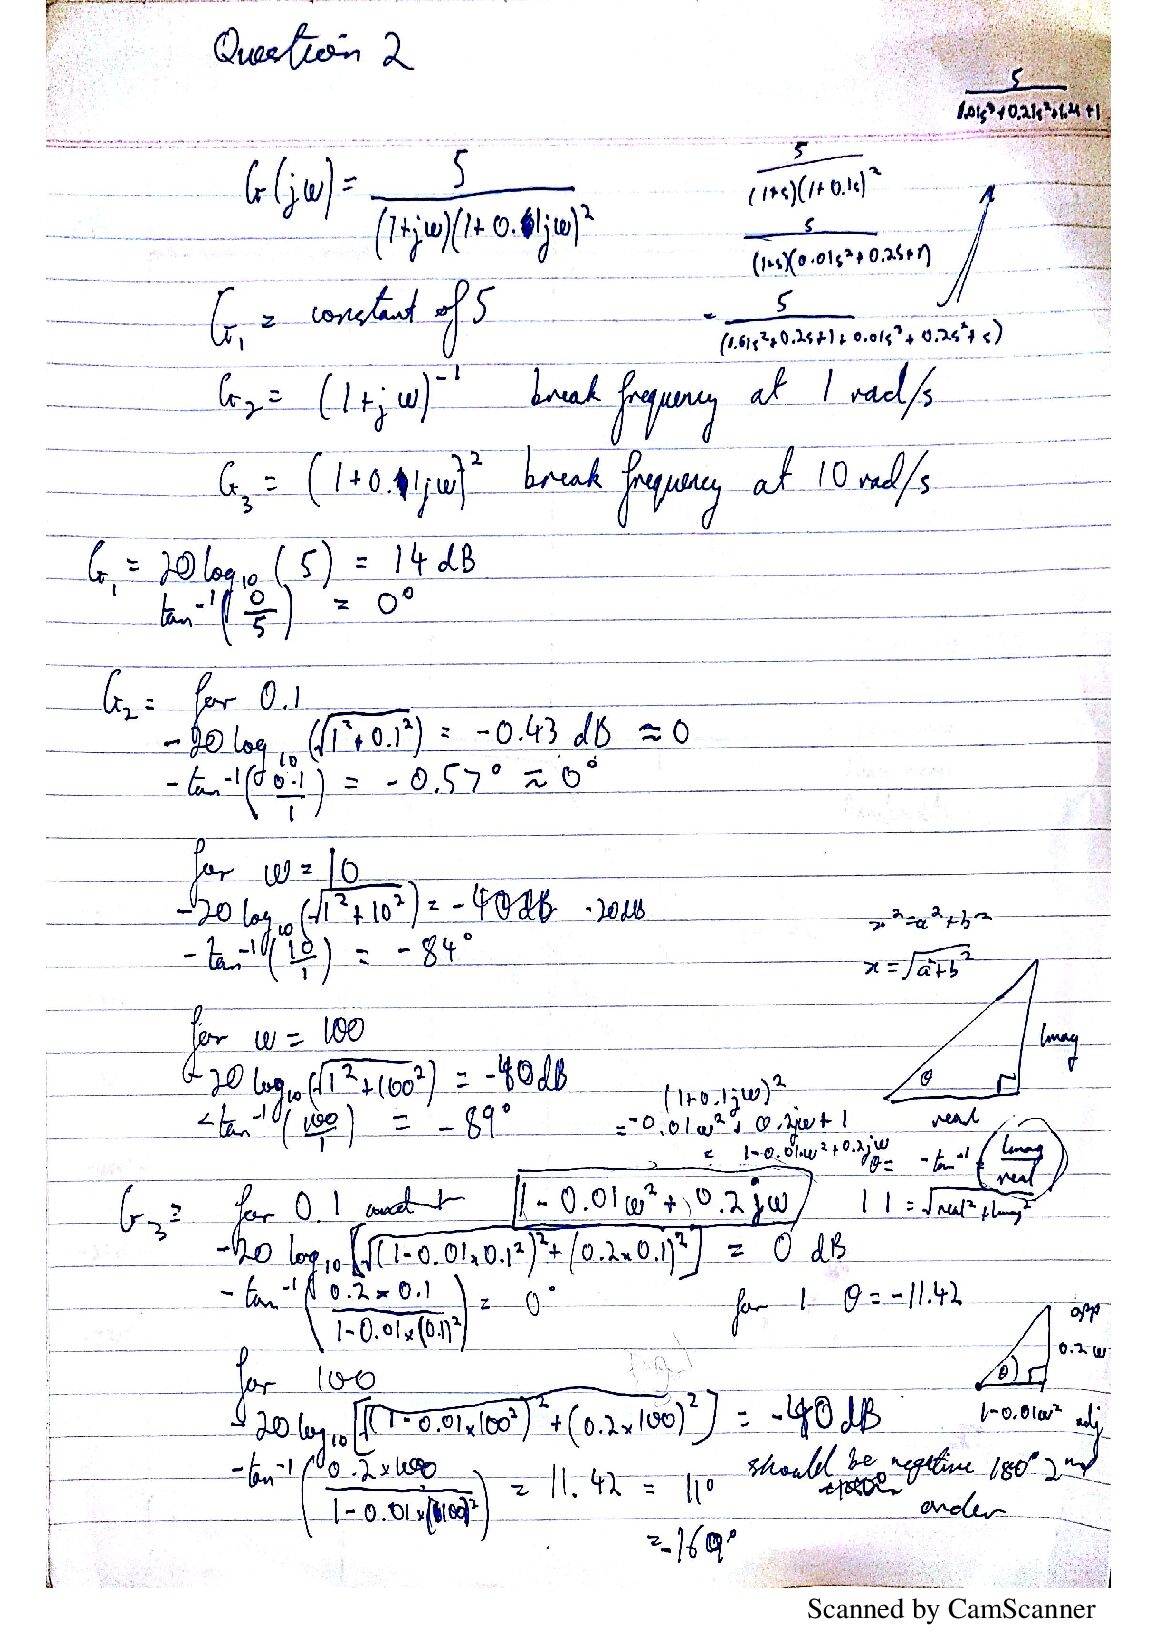 Question 2
5
1.01s³+0.21s²+1.2s+1
G(jω) = 5 / (1+jω)(1+0.1jω)²
5 / (1+s)(1+0.1s)²
5 / (1+s)(0.01s²+0.2s+1)
= 5 / (0.01s²+0.2s+1+0.01s³+0.2s²+s)
G₁ = constant of 5
G₂ = (1+jω)⁻¹ break frequency at 1 rad/s
G₃ = (1+0.1jω)² break frequency at 10 rad/s
G₁ = 20 log₁₀ (5) = 14 dB
tan⁻¹(0/5) = 0°
G₂ = for 0.1
-20 log₁₀ (√1²+0.1²) = -0.43 dB ≈ 0
-tan⁻¹(0.1/1) = -0.57° ≈ 0°
for ω = 10
-20 log₁₀ (√1²+10²) = -40dB -20dB
-tan⁻¹(10/1) = -84°
x² = a²+b²
x = √a²+b²
for ω = 100
-20 log₁₀ (√1²+100²) = -40dB
-tan⁻¹(100/1) = -89°
Imag
θ
real
(1+0.1jω)²
= -0.01ω² + 0.2jω + 1
= 1-0.01ω²+0.2jω
θ = -tan⁻¹ (Imag/real)
G₃ = for 0.1 1-0.01ω²+0.2jω | | = √real²+Imag²
-20 log₁₀ [√(1-0.01×0.1²)²+(0.2×0.1)²] = 0 dB
-tan⁻¹(0.2×0.1 / 1-0.01×(0.1)²) = 0° for 1 θ = -11.42
opp
0.2ω
θ
1-0.01ω² adj
for 100
-20 log₁₀ [√(1-0.01×100²)²+(0.2×100)²] = -40dB
-tan⁻¹(0.2×100 / 1-0.01×(100)²) = 11.42 = 11° should be negative 180° 2nd
order
= -169°
Scanned by CamScanner